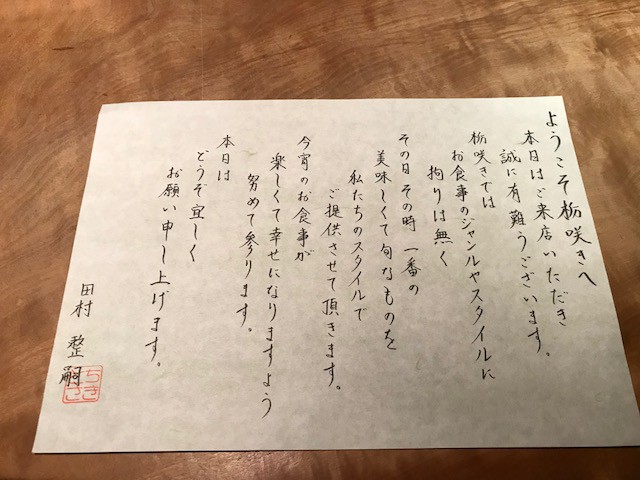 ようこそ栃咲きへ
本日はご来店いただき
誠に有難うございます。
栃咲きでは
お食事のジャンルやスタイルに
拘りは無く
その日その時一番の
美味しくて旬なものを
私たちのスタイルで
ご提供させて頂きます。
今宵のお食事が
楽しくて幸せになりますよう
努めて参ります。
本日は
どうぞ宜しく
お願い申し上げます。
田村 整嗣